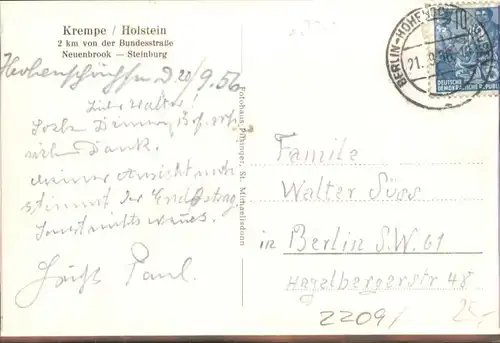 Krempe / Holstein
2 km von der Bundesstraße
Neuenbrook — Steinburg
d 20/9.56
Lieber Walter!
vielen Dank.
meiner Ansicht nach
stimmt der Endbetrag
Sonst nichts neues.
Paul.
Fotohaus Plisinger, St. Michaelisdonn
BERLIN-HOHEN
21.9.56
10
DEUTSCHE
DEMOKRATISCHE REPUBLIK
Familie
Walter Süss
in Berlin S.W. 61
Hagelbergerstr 48
2209/
25,-